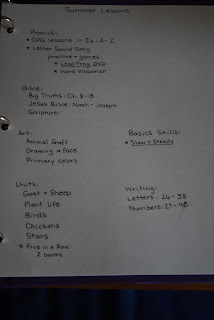 Summer Lessons
Phonics:
* OPG lessons 1-26: A-Z
* Letter Sound Song
practice + games
* Leap Frog DVD
* Word Whammer
Bible:
Big Truths: Ch. 8-13
Jesus Bible: Noah - Joseph
Scripture:
Art:
Animal Craft
Drawing a face
Primary colors
Basics Skills:
* Slow + Steady
Units:
Goat + Sheep
Plant life
Birds
Chickens
Stars
* Five in a Row
2 books
Writing:
Letters: 26-38
Numbers: 27-48